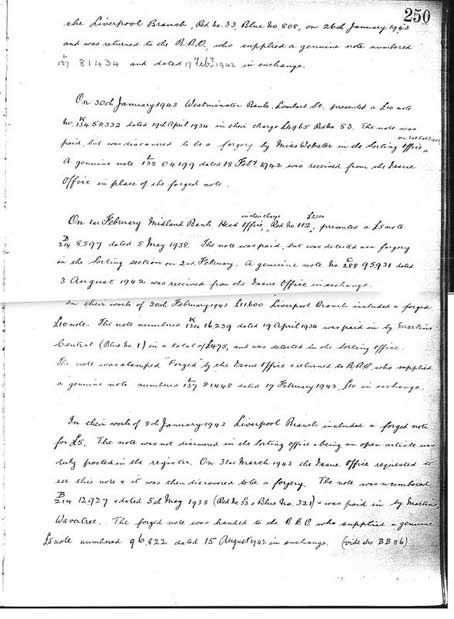 250
the Liverpool Branch, Red No. 33, Blue No. 808, on 26th January 1943
and was returned to the B.B.O., who supplied a genuine note numbered
137 81434 and dated 17 Feby 1942 in exchange.
On 30th January 1943 Westminster Bank, Lombard St. presented a £10 note
no. K/134 50,332 dated 19th April 1934 in their charge £4965 Red No 53. The note was
on 1st Feb 1943
paid, but was discovered to be a forgery by Miss Webster in the Sorting Office.
A genuine note L/138 04199 dated 18 Feby 1942 was received from the Issue
Office in place of the forged note.
in their charge
On 1st February Midland Bank, Head Office, Red No. 112, presented a £5 note
B/214 8597 dated 5 May 1938. The note was paid, but was detected as a forgery
in the Sorting section on 2nd February. A genuine note No. 288 95931 dated
3 August 1942 was received from the Issue Office in exchange.
In their work of 20th February 1943 £11600 Liverpool Branch included a forged
£10 note. The note numbered K/134 16,239 dated 19 April 1934 was paid in by Martins
Central (Blue No 1) in a total of £478, and was detected in the Sorting Office.
The note was stamped "Forged" by the Issue Office & returned to B.B.O, who supplied
a genuine note numbered 137 81448 dated 17 February 1942, £10 in exchange.
In their work of 8th January 1943 Liverpool Branch included a forged note
for £5. The note was not discovered in the Sorting Office & being an open article was
duly posted in the register. On 31st March 1943 the Issue Office requested to
see this note & it was then discovered to be a forgery. The note was numbered
B/214 12,927 & dated 5th May 1938 (Red No & Blue No. 321) & was paid in by Martins
Wavertree. The forged note was handed to the B.B.O. who supplied a genuine
£5 note numbered 96,822 dated 15 August 1942 in exchange. (vide BB 86)